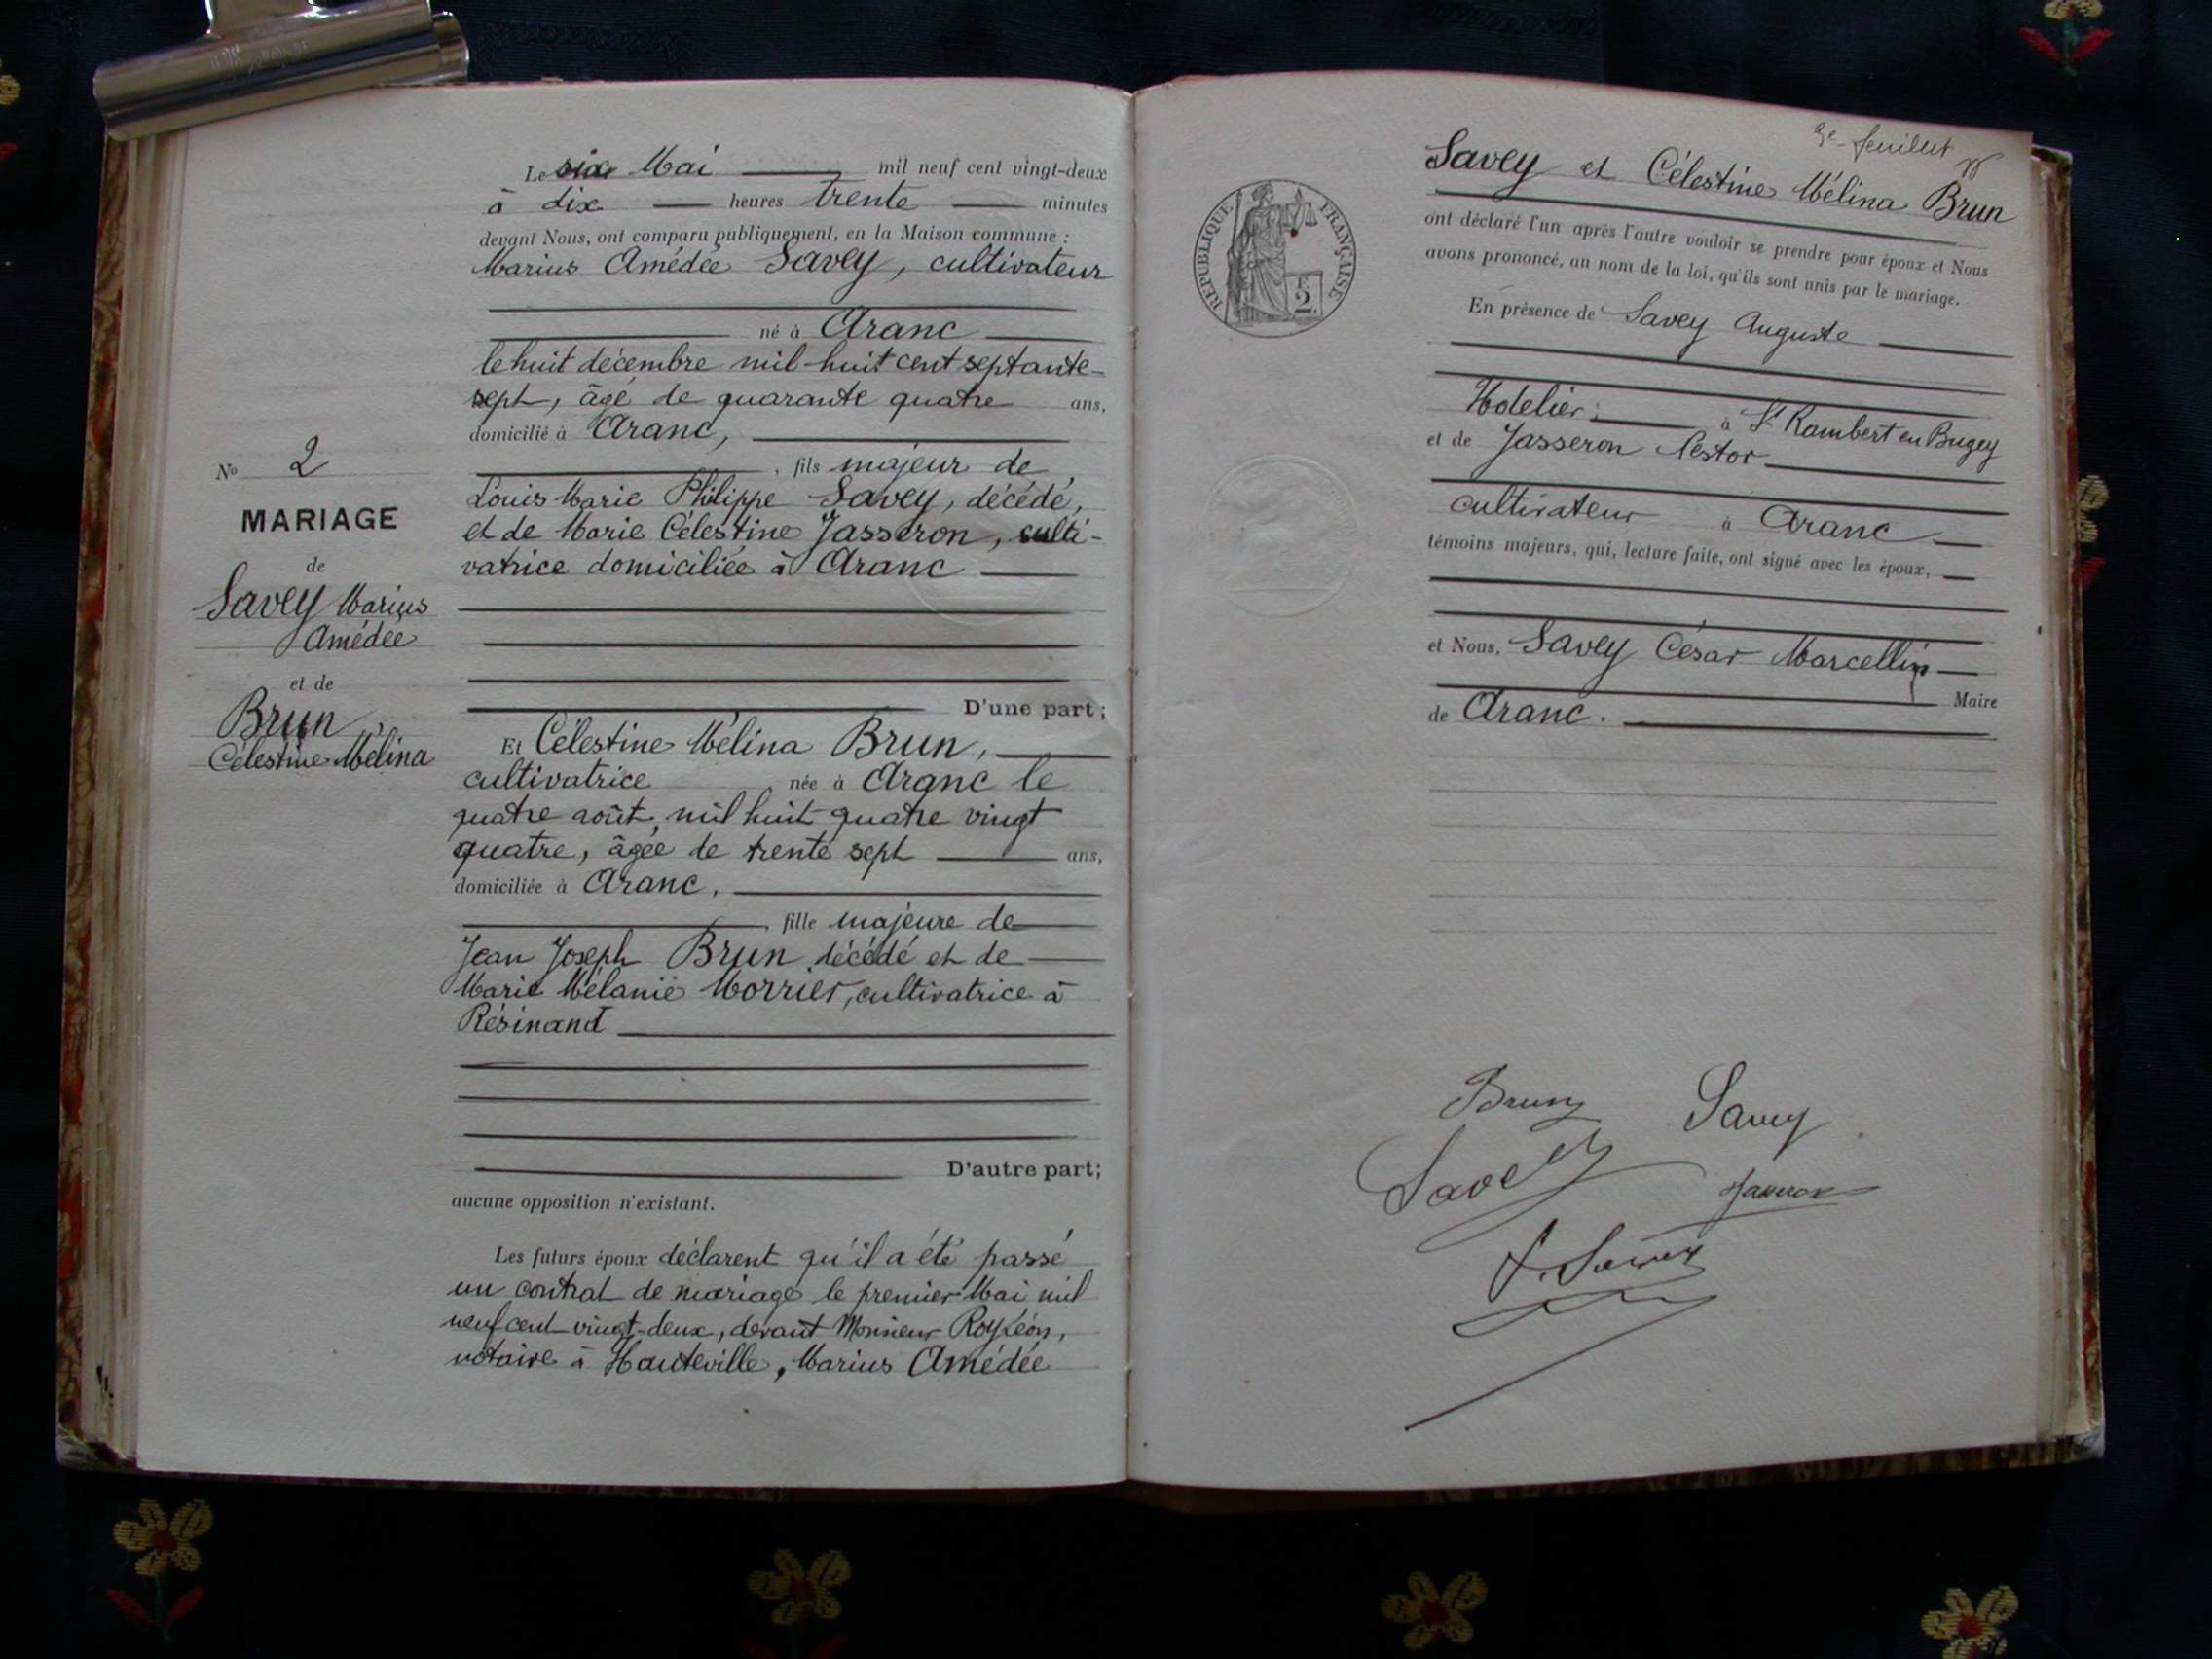 Le six Mai mil neuf cent vingt-deux
à dix heures trente minutes
devant Nous, ont comparu publiquement, en la Maison commune :
Marius Amédée Savey, cultivateur
né à Aranc
le huit décembre mil huit cent septante-
sept, âgé de quarante quatre ans,
domicilié à Aranc,
, fils majeur de
Louis Marie Philippe Savey, décédé,
et de Marie Célestine Jasseron, culti-
vatrice domiciliée à Aranc
No 2
MARIAGE
de
Savey Marius
Amédée
et de
Brun
Célestine Mélina
D'une part;
Et Célestine Mélina Brun,
cultivatrice née à Aranc le
quatre août, mil huit quatre vingt
quatre, âgée de trente sept ans,
domiciliée à Aranc,
, fille majeure de
Jean Joseph Brun décédé et de
Marie Mélanie Morrier, cultivatrice à
Résinand
D'autre part;
aucune opposition n'existant.
Les futurs époux déclarent qu'il a été passé
un contrat de mariage le premier Mai mil
neuf cent vingt-deux, devant Monsieur Roy Léon,
notaire à Hauteville, Marius Amédée
3e feuillet
Savey et Célestine Mélina Brun
ont déclaré l'un après l'autre vouloir se prendre pour époux et Nous
avons prononcé, au nom de la loi, qu'ils sont unis par le mariage.
En présence de Savey Auguste
Hôtelier à St Rambert en Bugey
et de Jasseron Nestor
cultivateur à Aranc
témoins majeurs, qui, lecture faite, ont signé avec les époux,
et Nous, Savey César Marcellin
Maire
de Aranc.
RÉPUBLIQUE FRANÇAISE
F. 2
Brun Savey
Savey Jasseron
Savey